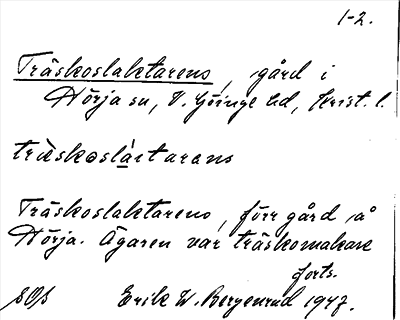 1-2.
Träskoslaktarens, gård i
Hörja sn, V. Göinge hd, Krist. l.
Träskoslaktarens, förr gård å
Hörja. Ägaren var träskomakare
forts.
Erik W. Bergenrud 1947.